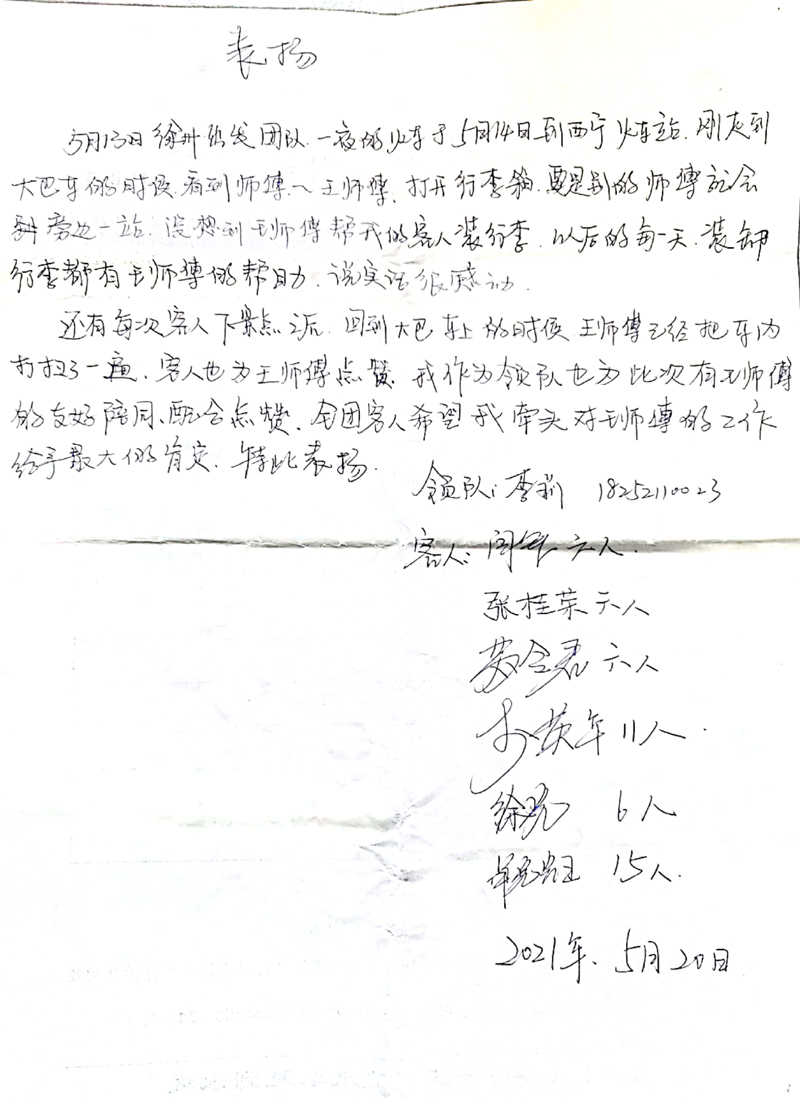 表扬
5月13日徐州出发团队.一夜的火车于5月14日到西宁火车站.刚走到
大巴车的时候.看到师傅~王师傅.打开行李箱.要是别的师傅就会
到旁边一站.没想到王师傅帮我的客人装行李.以后的每一天.装卸
行李都有王师傅的帮助.说实话很感动.
还有每次客人下景点之后.回到大巴车上的时候王师傅已经把车内
打扫了一遍.客人也为王师傅点赞.我作为领队也为此次有王师傅
的友好陪同、配合点赞.全团客人希望我牵头对王师傅的工作
给予最大的肯定.特此表扬.
领队:李莉 18252110023
客人: 六人.
张桂荣六人
六人
英年11人.
徐亮 6人
15人.
2021年.5月20日